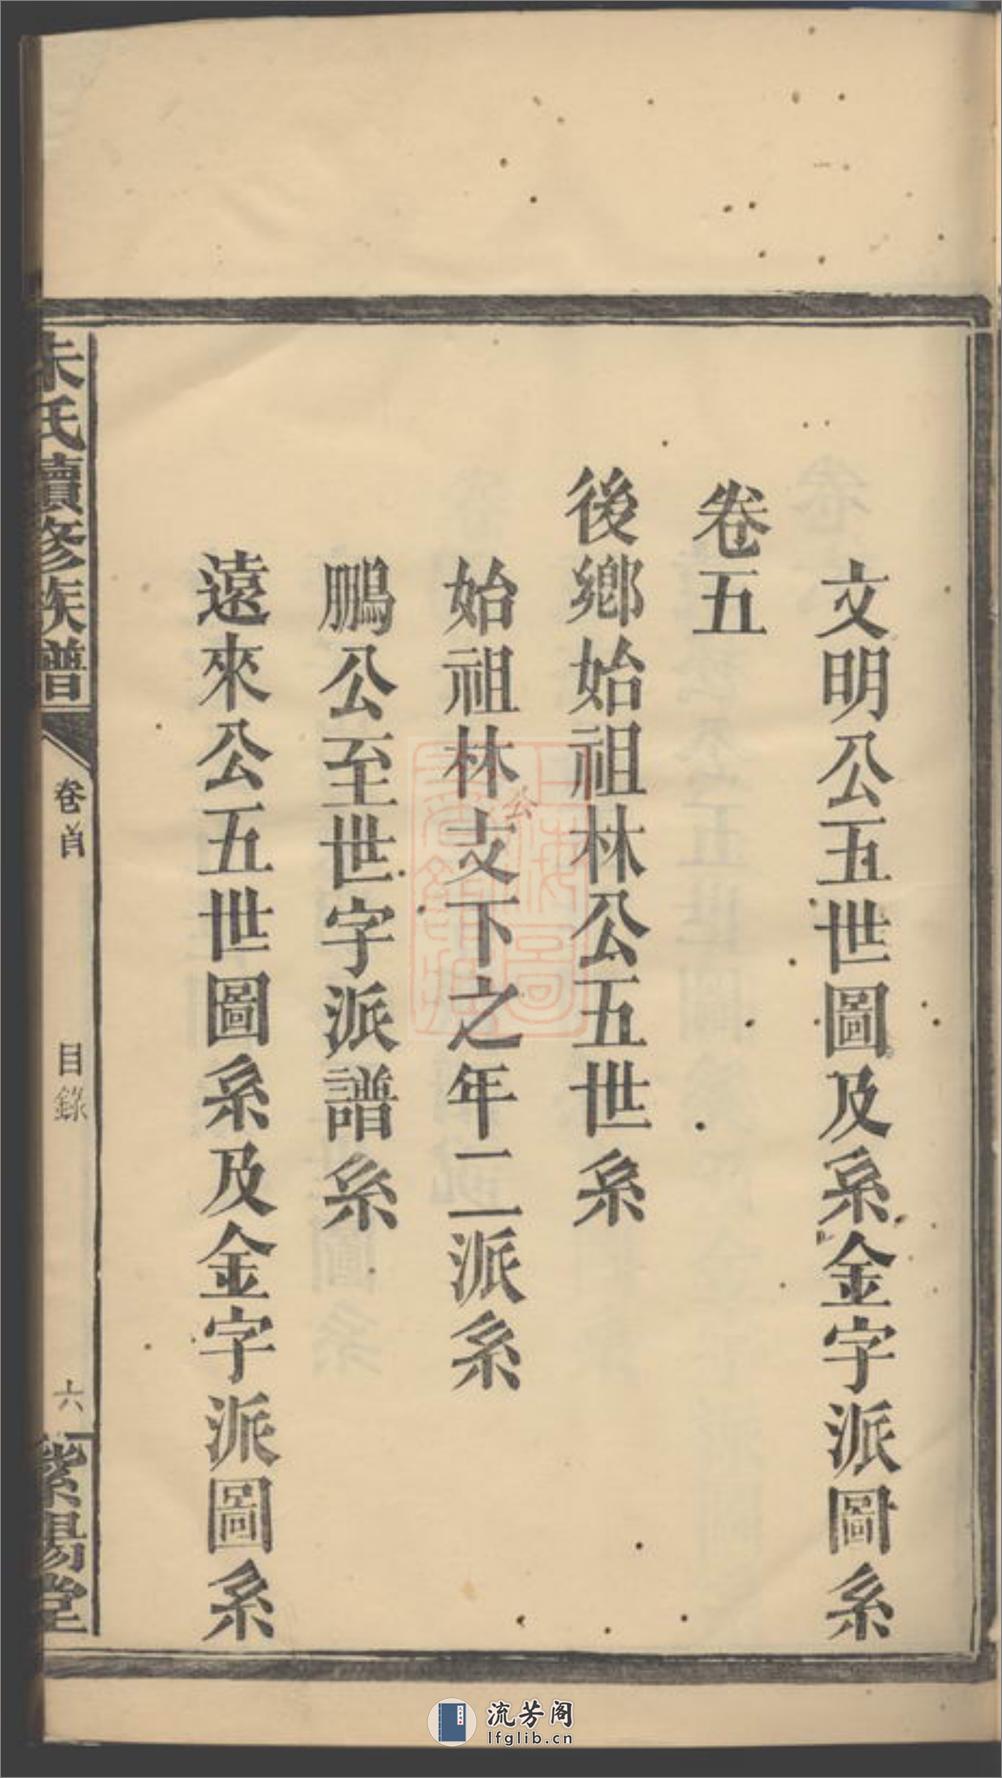 文明公五世圖及系金字派圖系
卷五
後鄉始祖林公五世系
始祖林公支下之年二派系
鵬公至世字派譜系
遠來公五世圖系及金字派圖系
朱氏續修族譜
卷首
目錄
六
紫陽堂
流芳阁
lfglib.cn